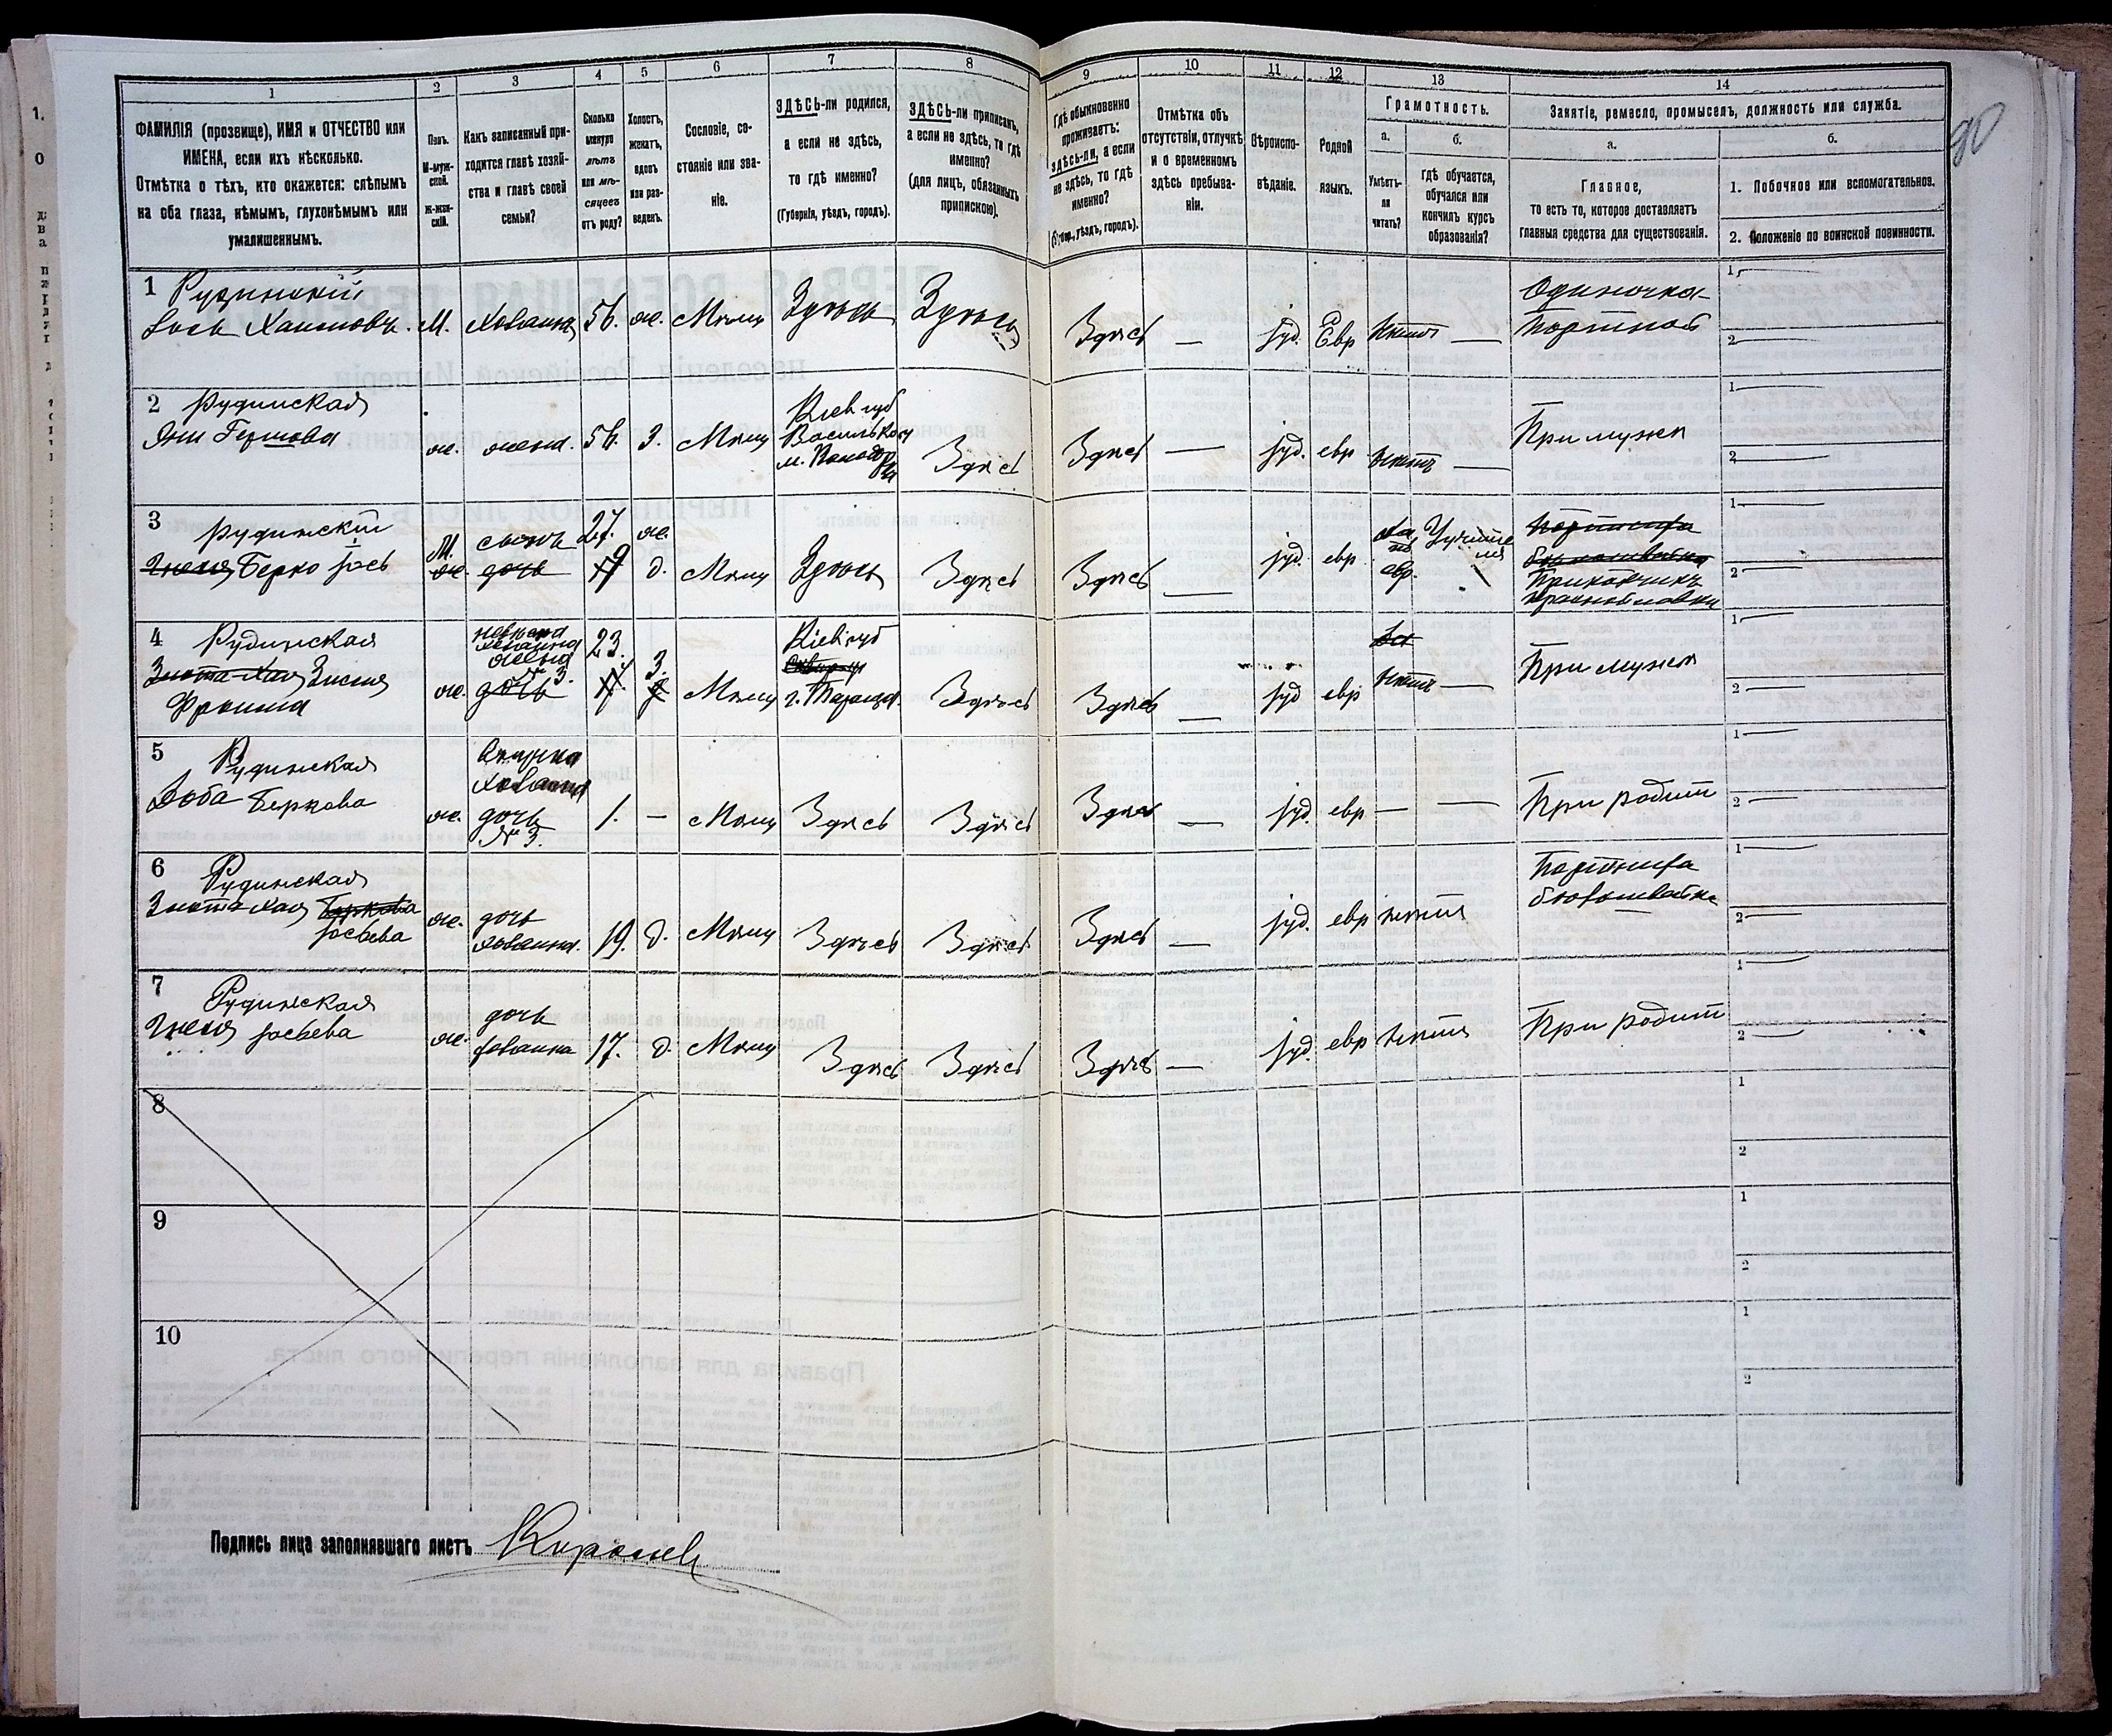 1
2
3
4
5
6
7
8
ФАМИЛІЯ (прозвище), ИМЯ и ОТЧЕСТВО или
ИМЕНА, если ихъ нѣсколько.
Отмѣтка о тѣхъ, кто окажется: слѣпымъ
на оба глаза, нѣмымъ, глухонѣмымъ или
умалишеннымъ.
Полъ.
М-муж-
ской.
Ж-жен-
скій.
Какъ записанный при-
ходится главѣ хозяй-
ства и главѣ своей
семьи?
Сколько
минуло
лѣтъ
или мѣ-
сяцевъ
отъ роду?
Холостъ,
женатъ,
вдовъ
или раз-
веденъ.
Сословіе, со-
стояніе или зва-
ніе.
ЗДѢСЬ-ли родился,
а если не здѣсь,
то гдѣ именно?
(Губернія, уѣздъ, городъ).
ЗДѢСЬ-ли приписанъ,
а если не здѣсь, то гдѣ
именно?
(для лицъ, обязанныхъ
припискою).
9
10
11
12
13
14
Гдѣ обыкновенно
проживаетъ:
здѣсь-ли, а если
не здѣсь, то гдѣ
именно?
(Губ., уѣздъ, городъ).
Отмѣтка объ
отсутствіи, отлучкѣ
и о временномъ
здѣсь пребыва-
ніи.
Вѣроиспо-
вѣданіе.
Родной
языкъ.
Грамотность.
а.
б.
Умѣетъ-
ли
читать?
гдѣ обучается,
обучался или
кончилъ курсъ
образованія?
Занятіе, ремесло, промыселъ, должность или служба.
а.
б.
Главное,
то есть то, которое доставляетъ
главныя средства для существованія.
1. Побочное или вспомогательное.
2. Положеніе по воинской повинности.
90
1 Рудинскій
Хаимовъ. М. Хозяинъ 56. ж. Мѣщ Здѣсь Здѣсь Здѣсь — іуд. Евр нѣтъ —
Одиночка
Портной
1 —
2 —
2 Рудинская
Гершова ж. жена. 56. З. Мѣщ
Кіев губ
Васильков у
м.
Здѣсь Здѣсь — іуд. евр нѣтъ — При мужѣ
1 —
2 —
3 Рудинскій
Гнеся Берко Іось
М. сынъ 27. ж.
ж. дочь 19 д. Мѣщ Здѣсь Здѣсь Здѣсь — іуд. евр
да
по
евр.
У учите
ля
Портниха
бѣлошвейка
Прикащикъ
1 —
2 —
4 Рудинская
Злота Хая Зисля
Фроима
невѣстка
хозяина
жена
№ 3.
ж. дочь
23. 17. З. д. Мѣщ
Кіев губ
г. Тараща.
Здѣсь Здѣсь — іуд евр
да
нѣтъ — При мужѣ
1 —
2 —
5 Рудинская
Доба Беркова
Внучка
хозяина
ж. дочь
№ 3.
1. — Мѣщ Здѣсь Здѣсь Здѣсь — іуд. евр — — При родит
1 —
2 —
6 Рудинская
Злота Хая Беркова
Іосьева
ж. дочь
хозяина. 19. д. Мѣщ Здѣсь Здѣсь Здѣсь — іуд. евр нѣтъ
Портниха
бѣлошвейка
1 —
2 —
7 Рудинская
Гнеся Іосьева
ж. дочь
хозяина 17. д. Мѣщ Здѣсь Здѣсь Здѣсь — іуд. евр нѣтъ При родит
1 —
2 —
8
1
2
9
1
2
10
1
2
Подпись лица заполнявшаго листъ